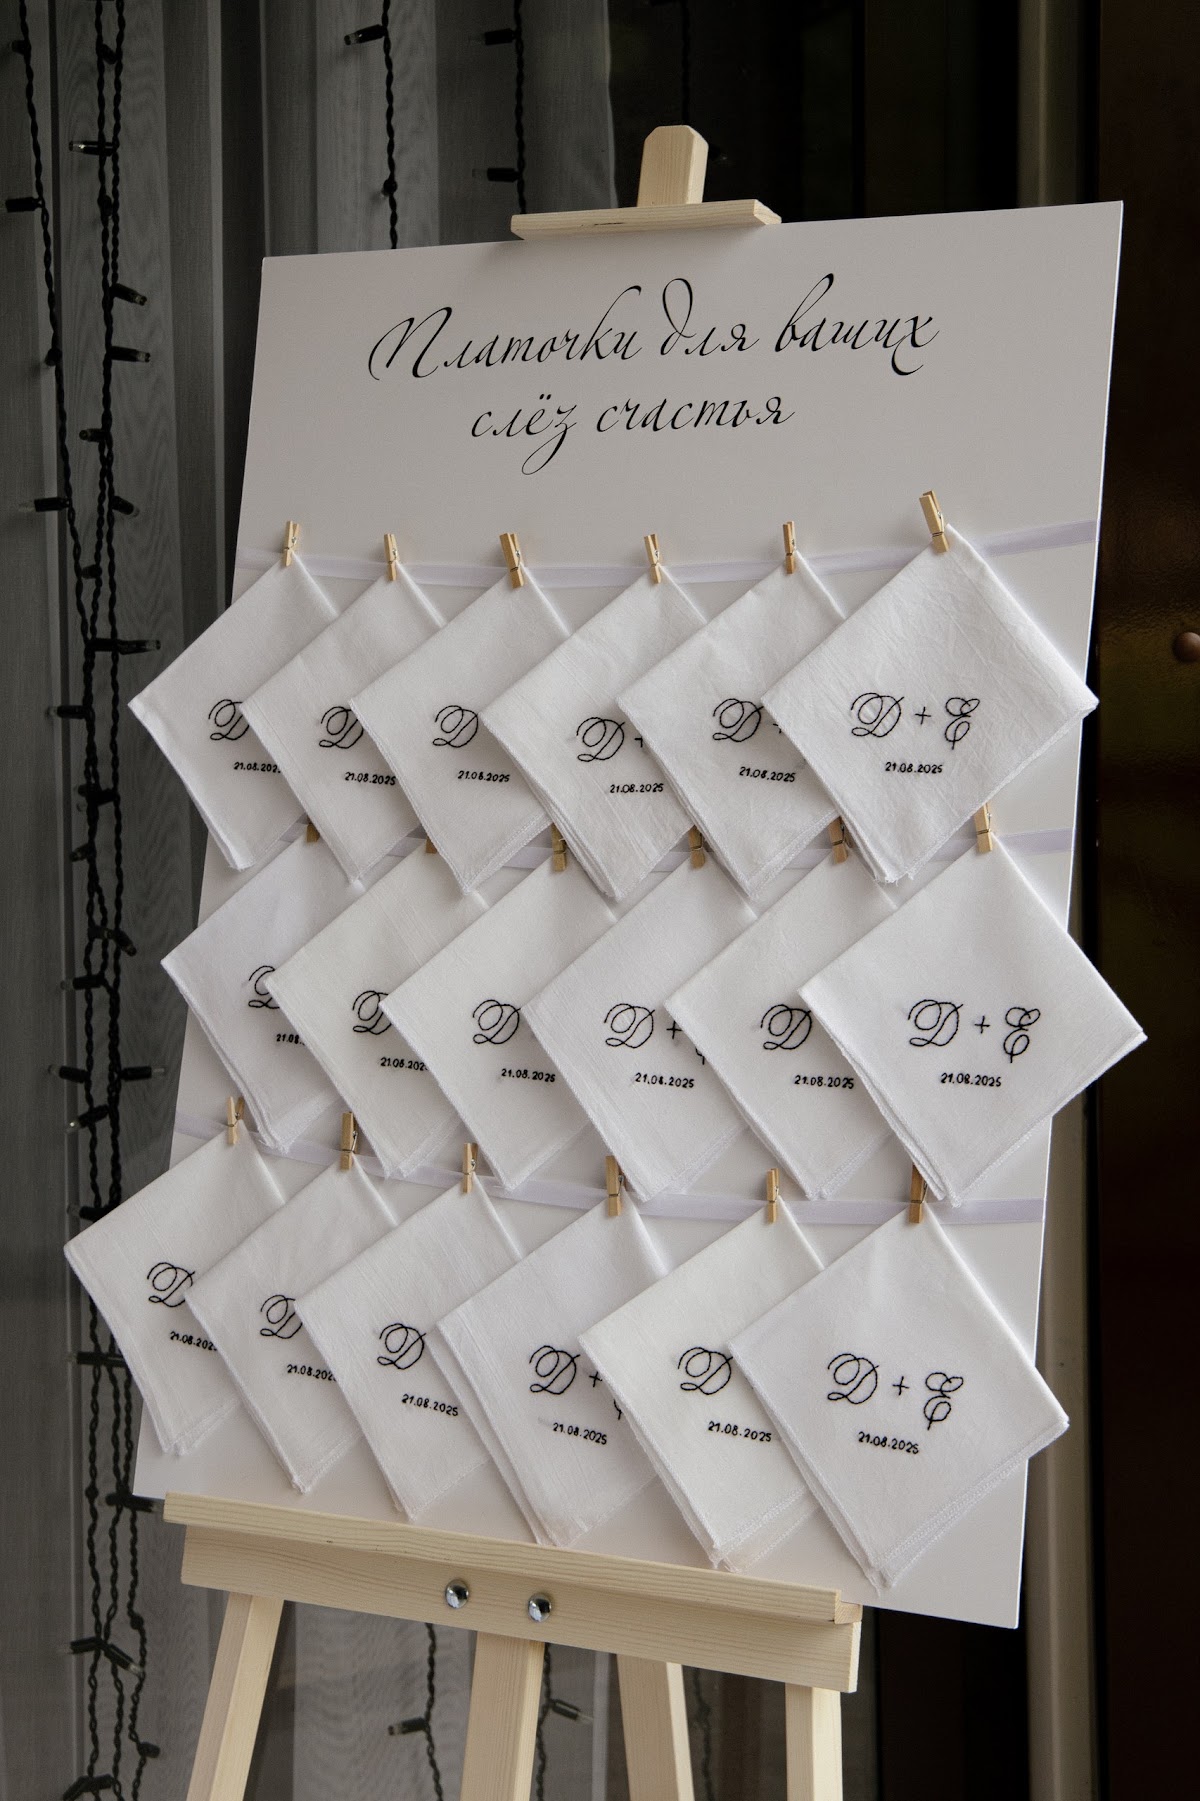 Платочки для ваших
слёз счастья
D
21.08.202
D
21.08.2025
D
21.08.2025
D +
21.08.2025
D +
21.08.2025
D + E
21.08.2025
D
21.08.
D
21.08.202
D
21.08.2025
D +
21.08.2025
D
21.08.2025
D + E
21.08.2025
D
21.08.202
D
21.08.202
D
21.08.2025
D +
21.08.2025
D
21.08.2025
D + E
21.08.2025